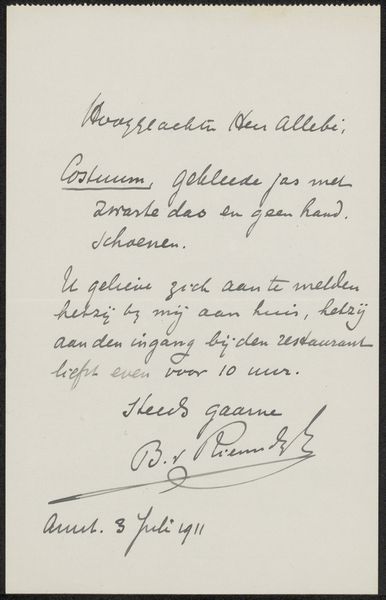 Hooggeachte Heer Allebé,
Costuum, gekleede jas met
zwarte das en geen hand.
schoenen.
U gelieve zich aan te melden
hetzij by mij aan huis, hetzij
aan den ingang bij den restaurant
liefst even voor 10 uur.
Steeds gaarne
B. v Riemsdijk
Amst. 3 Juli 1911